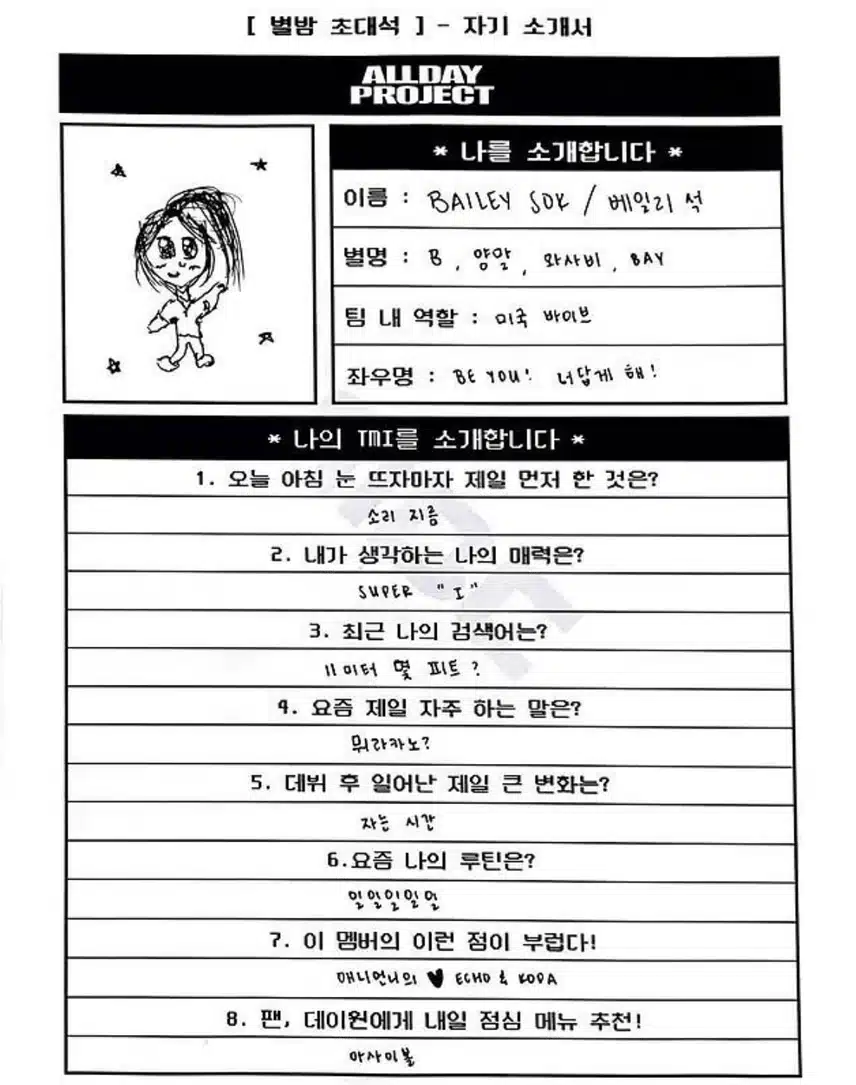 [ 별밤 초대석 ] - 자기 소개서
ALLDAY
PROJECT
* 나를 소개합니다 *
이름 : BAILEY SOK / 베일리 석
별명 : B, 양말, 와사비, BAY
팀 내 역할 : 미국 바이브
좌우명 : BE YOU! 너답게 해!
* 나의 TMI를 소개합니다 *
1. 오늘 아침 눈 뜨자마자 제일 먼저 한 것은?
소리 지름
2. 내가 생각하는 나의 매력은?
SUPER "I"
3. 최근 나의 검색어는?
11미터 몇 피트?
4. 요즘 제일 자주 하는 말은?
뭐라카노?
5. 데뷔 후 일어난 제일 큰 변화는?
자는 시간
6.요즘 나의 루틴은?
일일일일일
7. 이 멤버의 이런 점이 부럽다!
애니언니의 ♥ ECHO & KODA
8. 팬, 데이원에게 내일 점심 메뉴 추천!
아사이볼